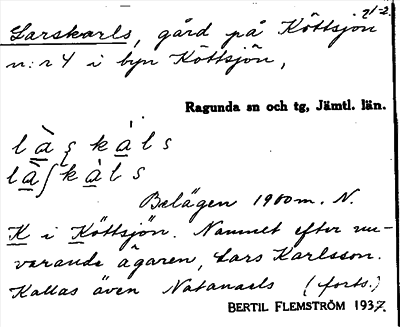 21-2.
Larskarls, gård på Köttsjön
n:r 4 i byn Köttsjön,
Ragunda sn och tg, Jämtl. län.
là̱ʂkà̱ls
là̱ʃkà̱ls
Belägen 1900 m. N.
K i Köttsjön. Namnet efter nu-
varande ägaren, Lars Karlsson.
Kallas även Natanaels (forts.)
BERTIL FLEMSTRÖM 1937.